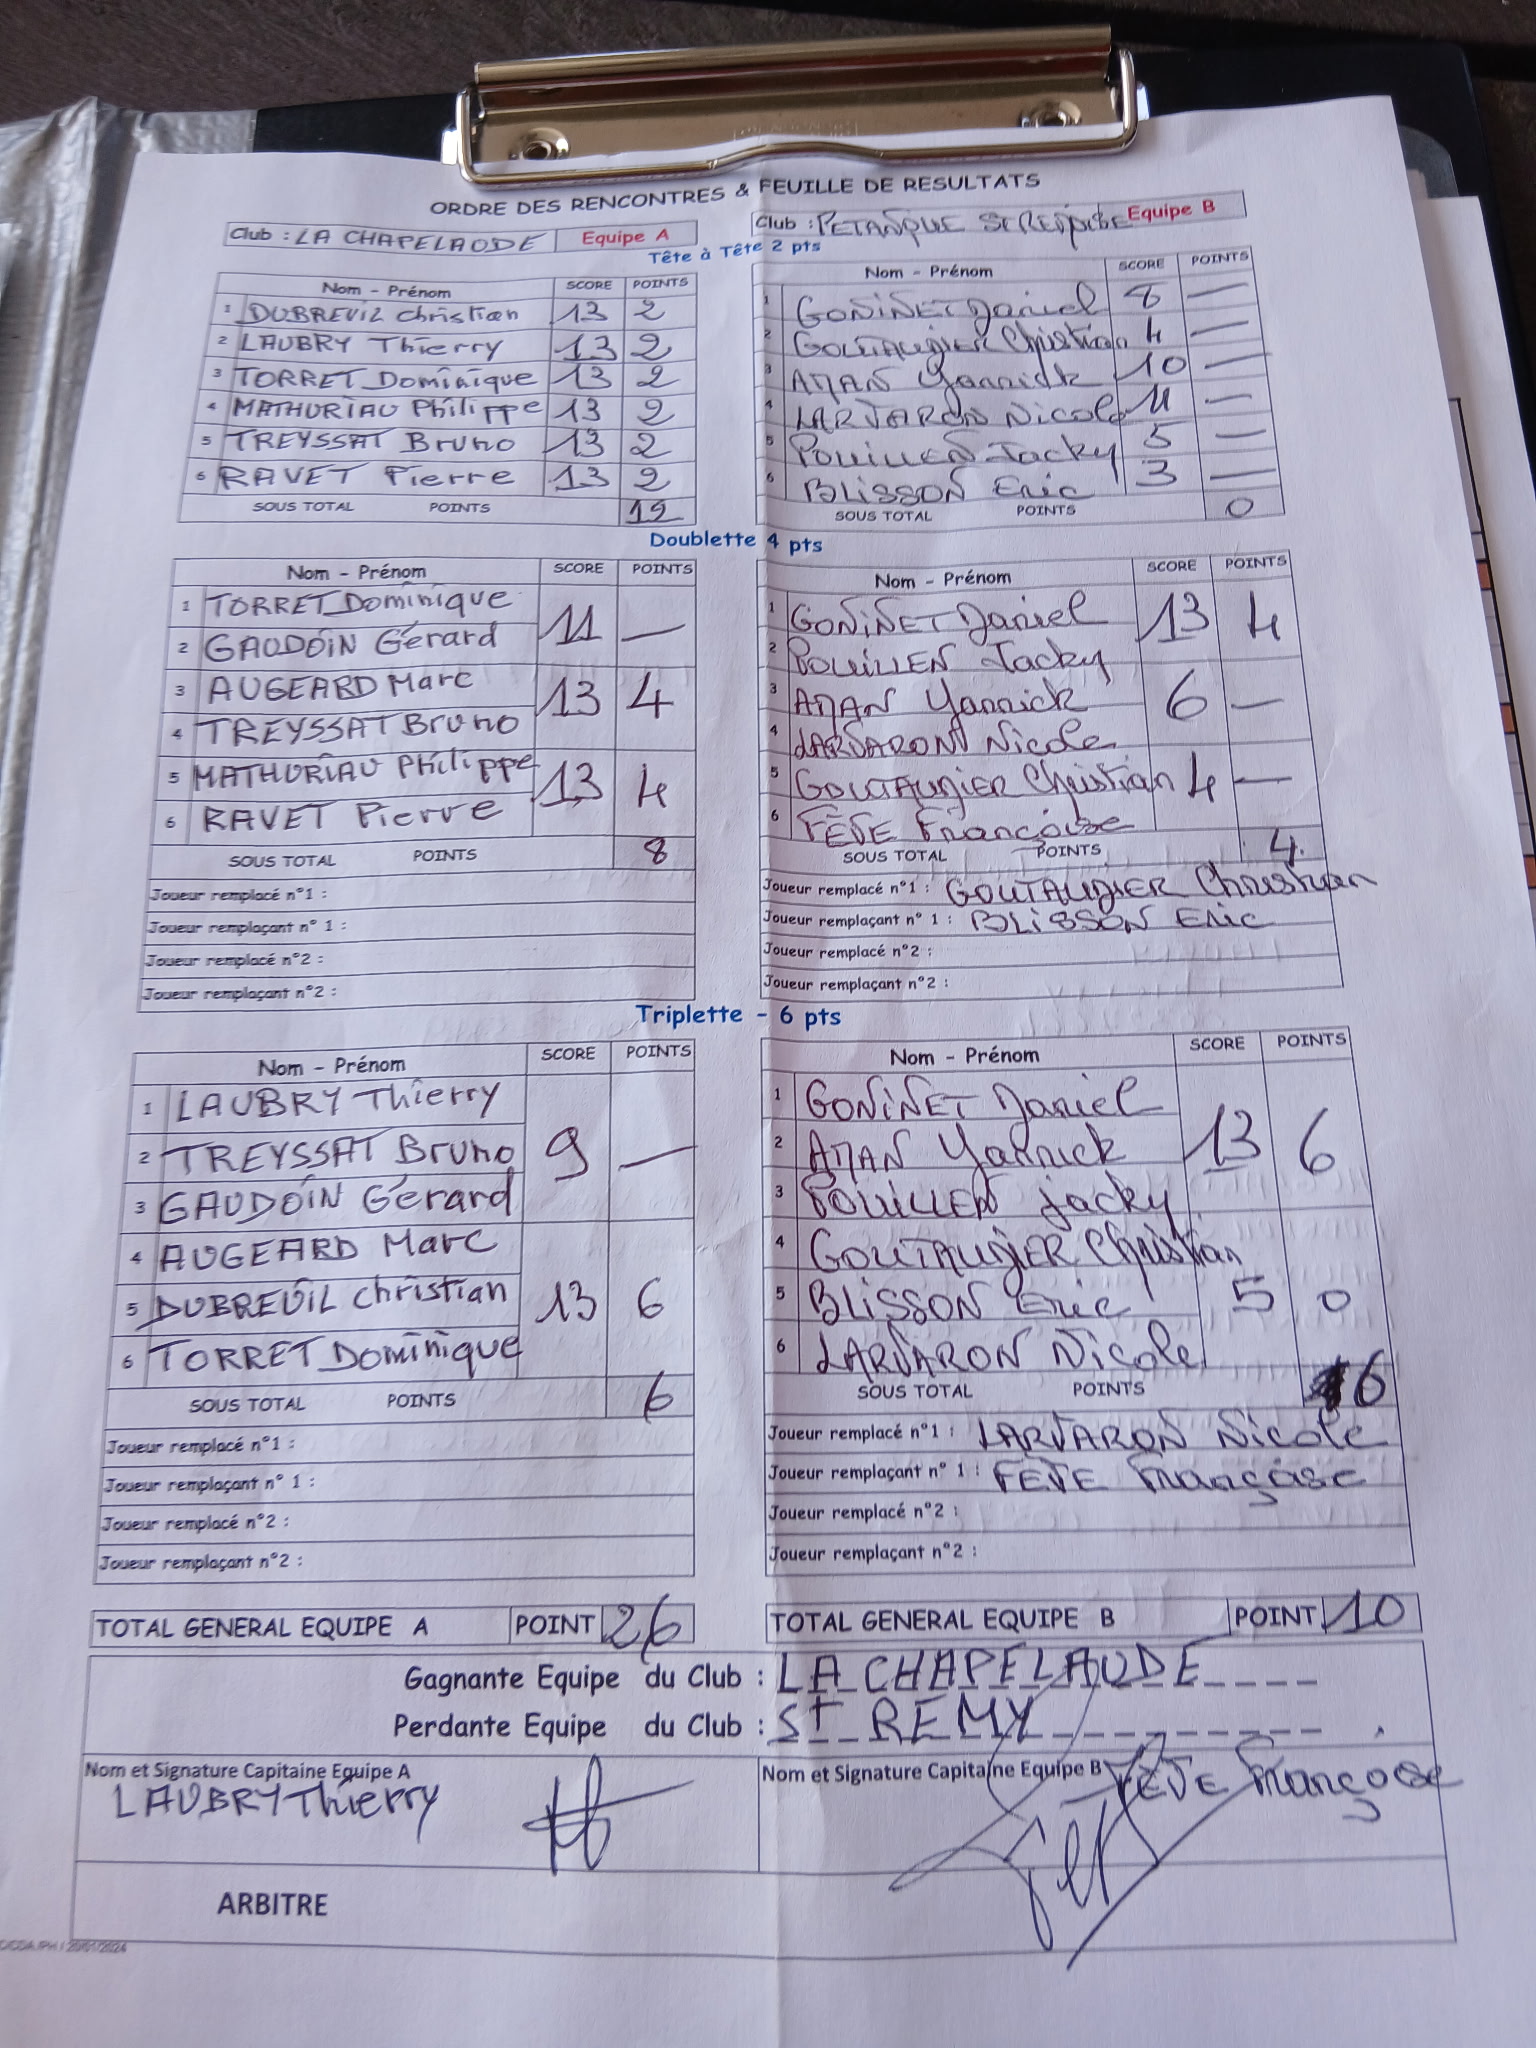 ORDRE DES RENCONTRES & FEUILLE DE RESULTATS
Club : LA CHAPELAUDE Equipe A
Club : PETANQUE ST Equipe B
Tête à Tête 2 pts
Nom - Prénom SCORE POINTS
1 DUBREUIL Christian 13 2
2 LAUBRY Thierry 13 2
3 TORRET Dominique 13 2
4 MATHURIAU Philippe 13 2
5 TREYSSAT Bruno 13 2
6 RAVET Pierre 13 2
SOUS TOTAL POINTS 12
Nom - Prénom SCORE POINTS
1 GONINET Daniel 8 —
2 GOUTAUDIER Christian 4 —
3 AMAN Yannick 10 —
4 LARVARON Nicole 11 —
5 POUILLEN Jacky 5 —
6 BLISSON Eric 3 —
SOUS TOTAL POINTS 0
Doublette 4 pts
Nom - Prénom SCORE POINTS
1 TORRET Dominique 11 —
2 GAUDOIN Gérard
3 AUGEARD Marc 13 4
4 TREYSSAT Bruno
5 MATHURIAU Philippe 13 4
6 RAVET Pierre
SOUS TOTAL POINTS 8
Joueur remplacé n°1 :
Joueur remplaçant n° 1 :
Joueur remplacé n°2 :
Joueur remplaçant n°2 :
Nom - Prénom SCORE POINTS
1 GONINET Daniel 13 4
2 POUILLEN Jacky
3 AMAN Yannick 6 —
4 LARVARON Nicole
5 GOUTAUDIER Christian 4 —
6 FÈVE Françoise
SOUS TOTAL POINTS 4.
Joueur remplacé n°1 : GOUTAUDIER Christian
Joueur remplaçant n° 1 : BLISSON Eric
Joueur remplacé n°2 :
Joueur remplaçant n°2 :
Triplette - 6 pts
Nom - Prénom SCORE POINTS
1 LAUBRY Thierry
2 TREYSSAT Bruno 9 —
3 GAUDOIN Gérard
4 AUGEARD Marc
5 DUBREUIL Christian 13 6
6 TORRET Dominique
SOUS TOTAL POINTS 6
Joueur remplacé n°1 :
Joueur remplaçant n° 1 :
Joueur remplacé n°2 :
Joueur remplaçant n°2 :
Nom - Prénom SCORE POINTS
1 GONINET Daniel
2 AMAN Yannick 13 6
3 POUILLEN Jacky
4 GOUTAUDIER Christian
5 BLISSON Eric 5 0
6 LARVARON Nicole
SOUS TOTAL POINTS 6
Joueur remplacé n°1 : LARVARON Nicole
Joueur remplaçant n° 1 : FEVE Françoise
Joueur remplacé n°2 :
Joueur remplaçant n°2 :
TOTAL GENERAL EQUIPE A POINT 26
TOTAL GENERAL EQUIPE B POINT 10
Gagnante Equipe du Club : LA CHAPELAUDE
Perdante Equipe du Club : St REMY
Nom et Signature Capitaine Equipe A
LAUBRY Thierry
Nom et Signature Capitaine Equipe B FÈVE Françoise
ARBITRE
/ 20/01/2024